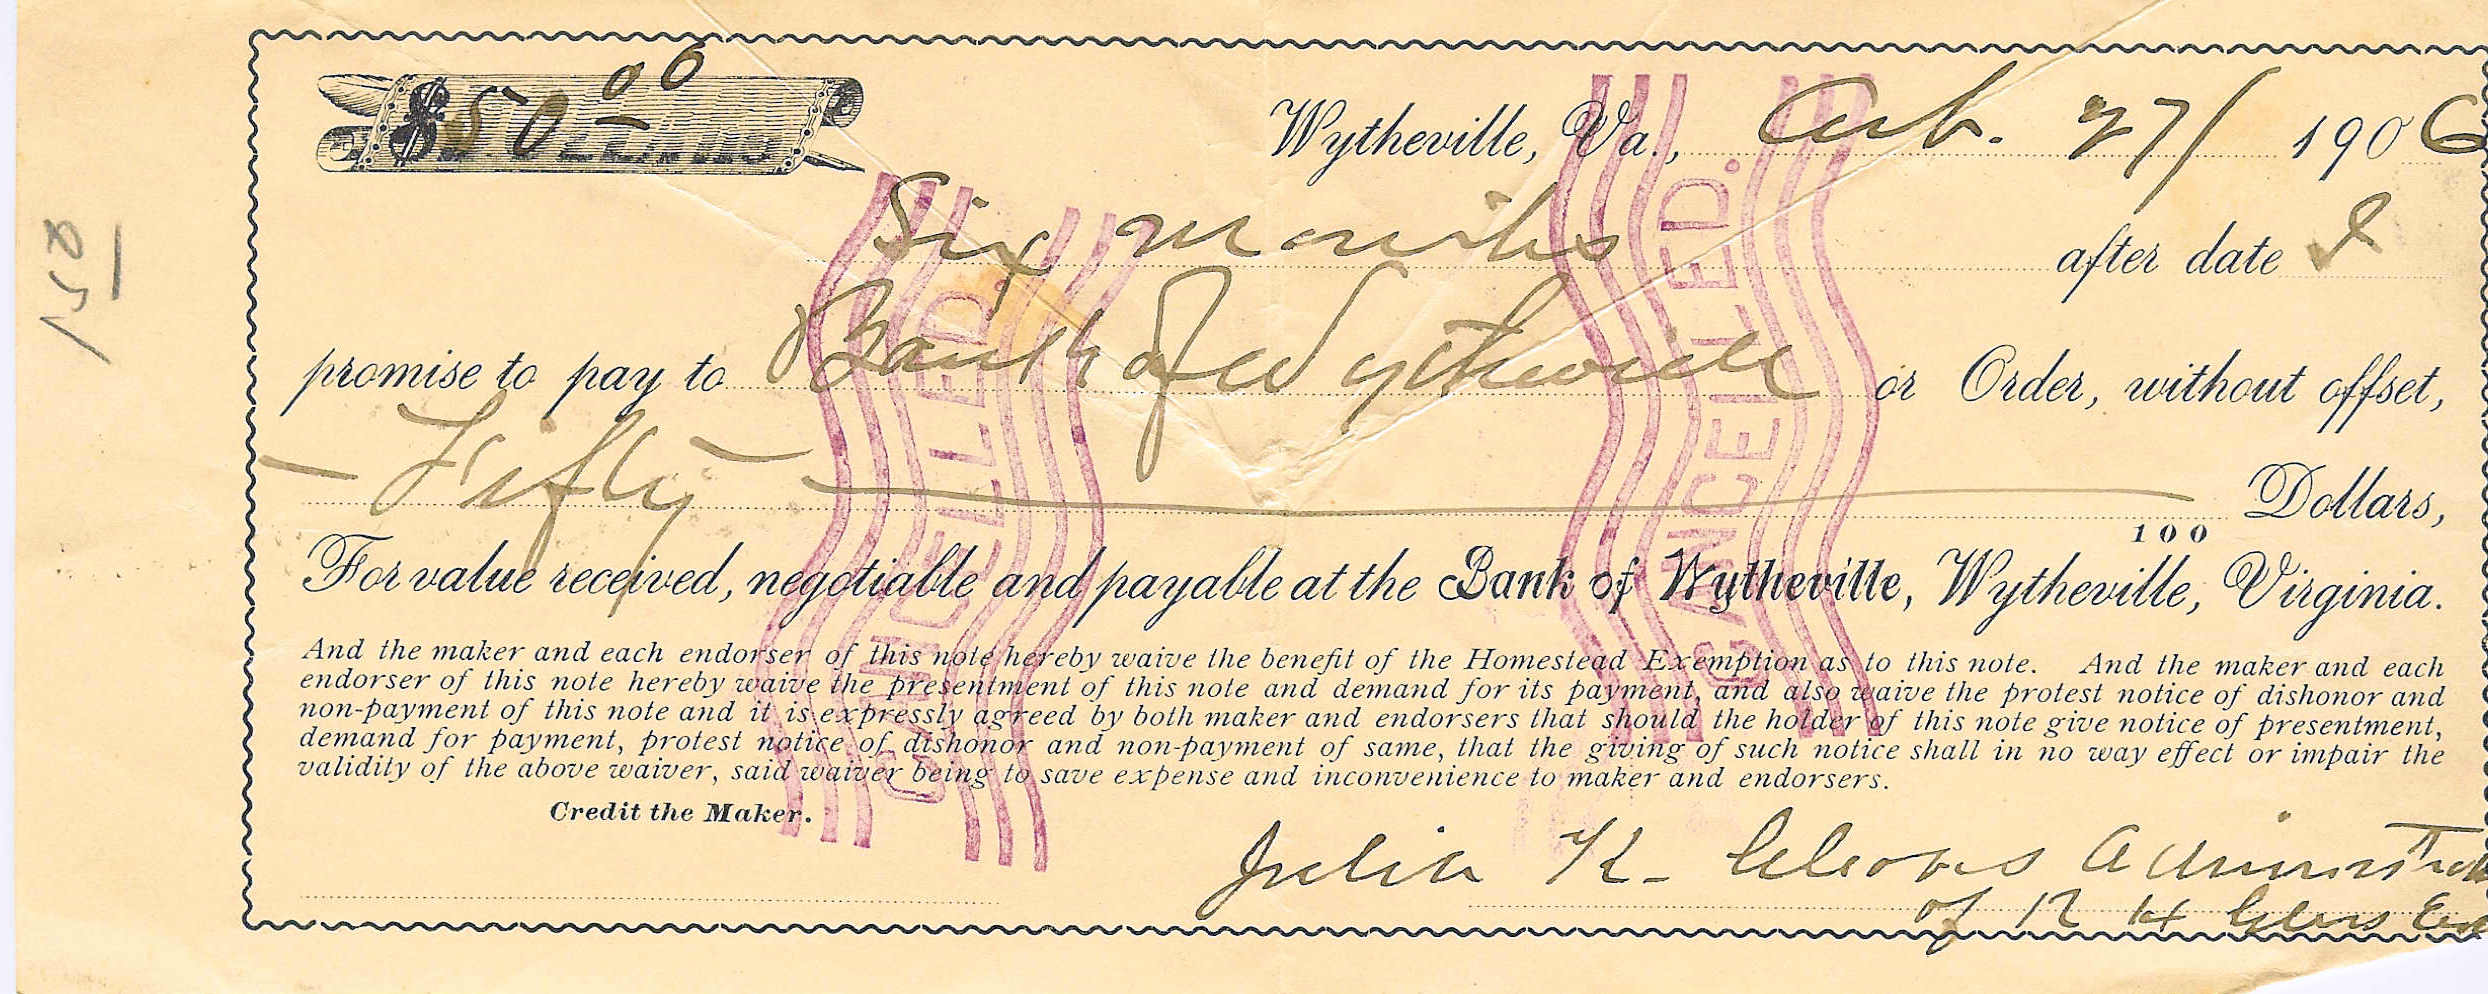 $50 00
Wytheville, Va., 27/ 1906
Six months after date I
promise to pay to Bank of Wytheville or Order, without offset,
Fifty Dollars,
100
For value received, negotiable and payable at the Bank of Wytheville, Wytheville, Virginia.
And the maker and each endorser of this note hereby waive the benefit of the Homestead Exemption as to this note. And the maker and each
endorser of this note hereby waive the presentment of this note and demand for its payment, and also waive the protest notice of dishonor and
non-payment of this note and it is expressly agreed by both maker and endorsers that should the holder of this note give notice of presentment,
demand for payment, protest notice of dishonor and non-payment of same, that the giving of such notice shall in no way effect or impair the
validity of the above waiver, said waiver being to save expense and inconvenience to maker and endorsers.
Credit the Maker.
Julia K.
of R H
CANCELLED.
CANCELLED.
150